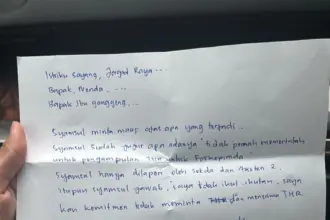 Istriku sayang, Jagad Raya...
Bapak, Nenda. ...
Bapak Ibu ganggeng...
Syamsul minta maaf atas apa yang terjadi..
Syamsul sudah jujur apa adanya tidak pernah memerintah
untuk pengumpulan THR untuk Forkopimda
Syamsul hanya dilapori oleh Sekda dan Asisten 2.
itupun Syamsul jawab, saya tidak ikut-ikutan, saya
kan komitmen tidak meminta dan menerima THR